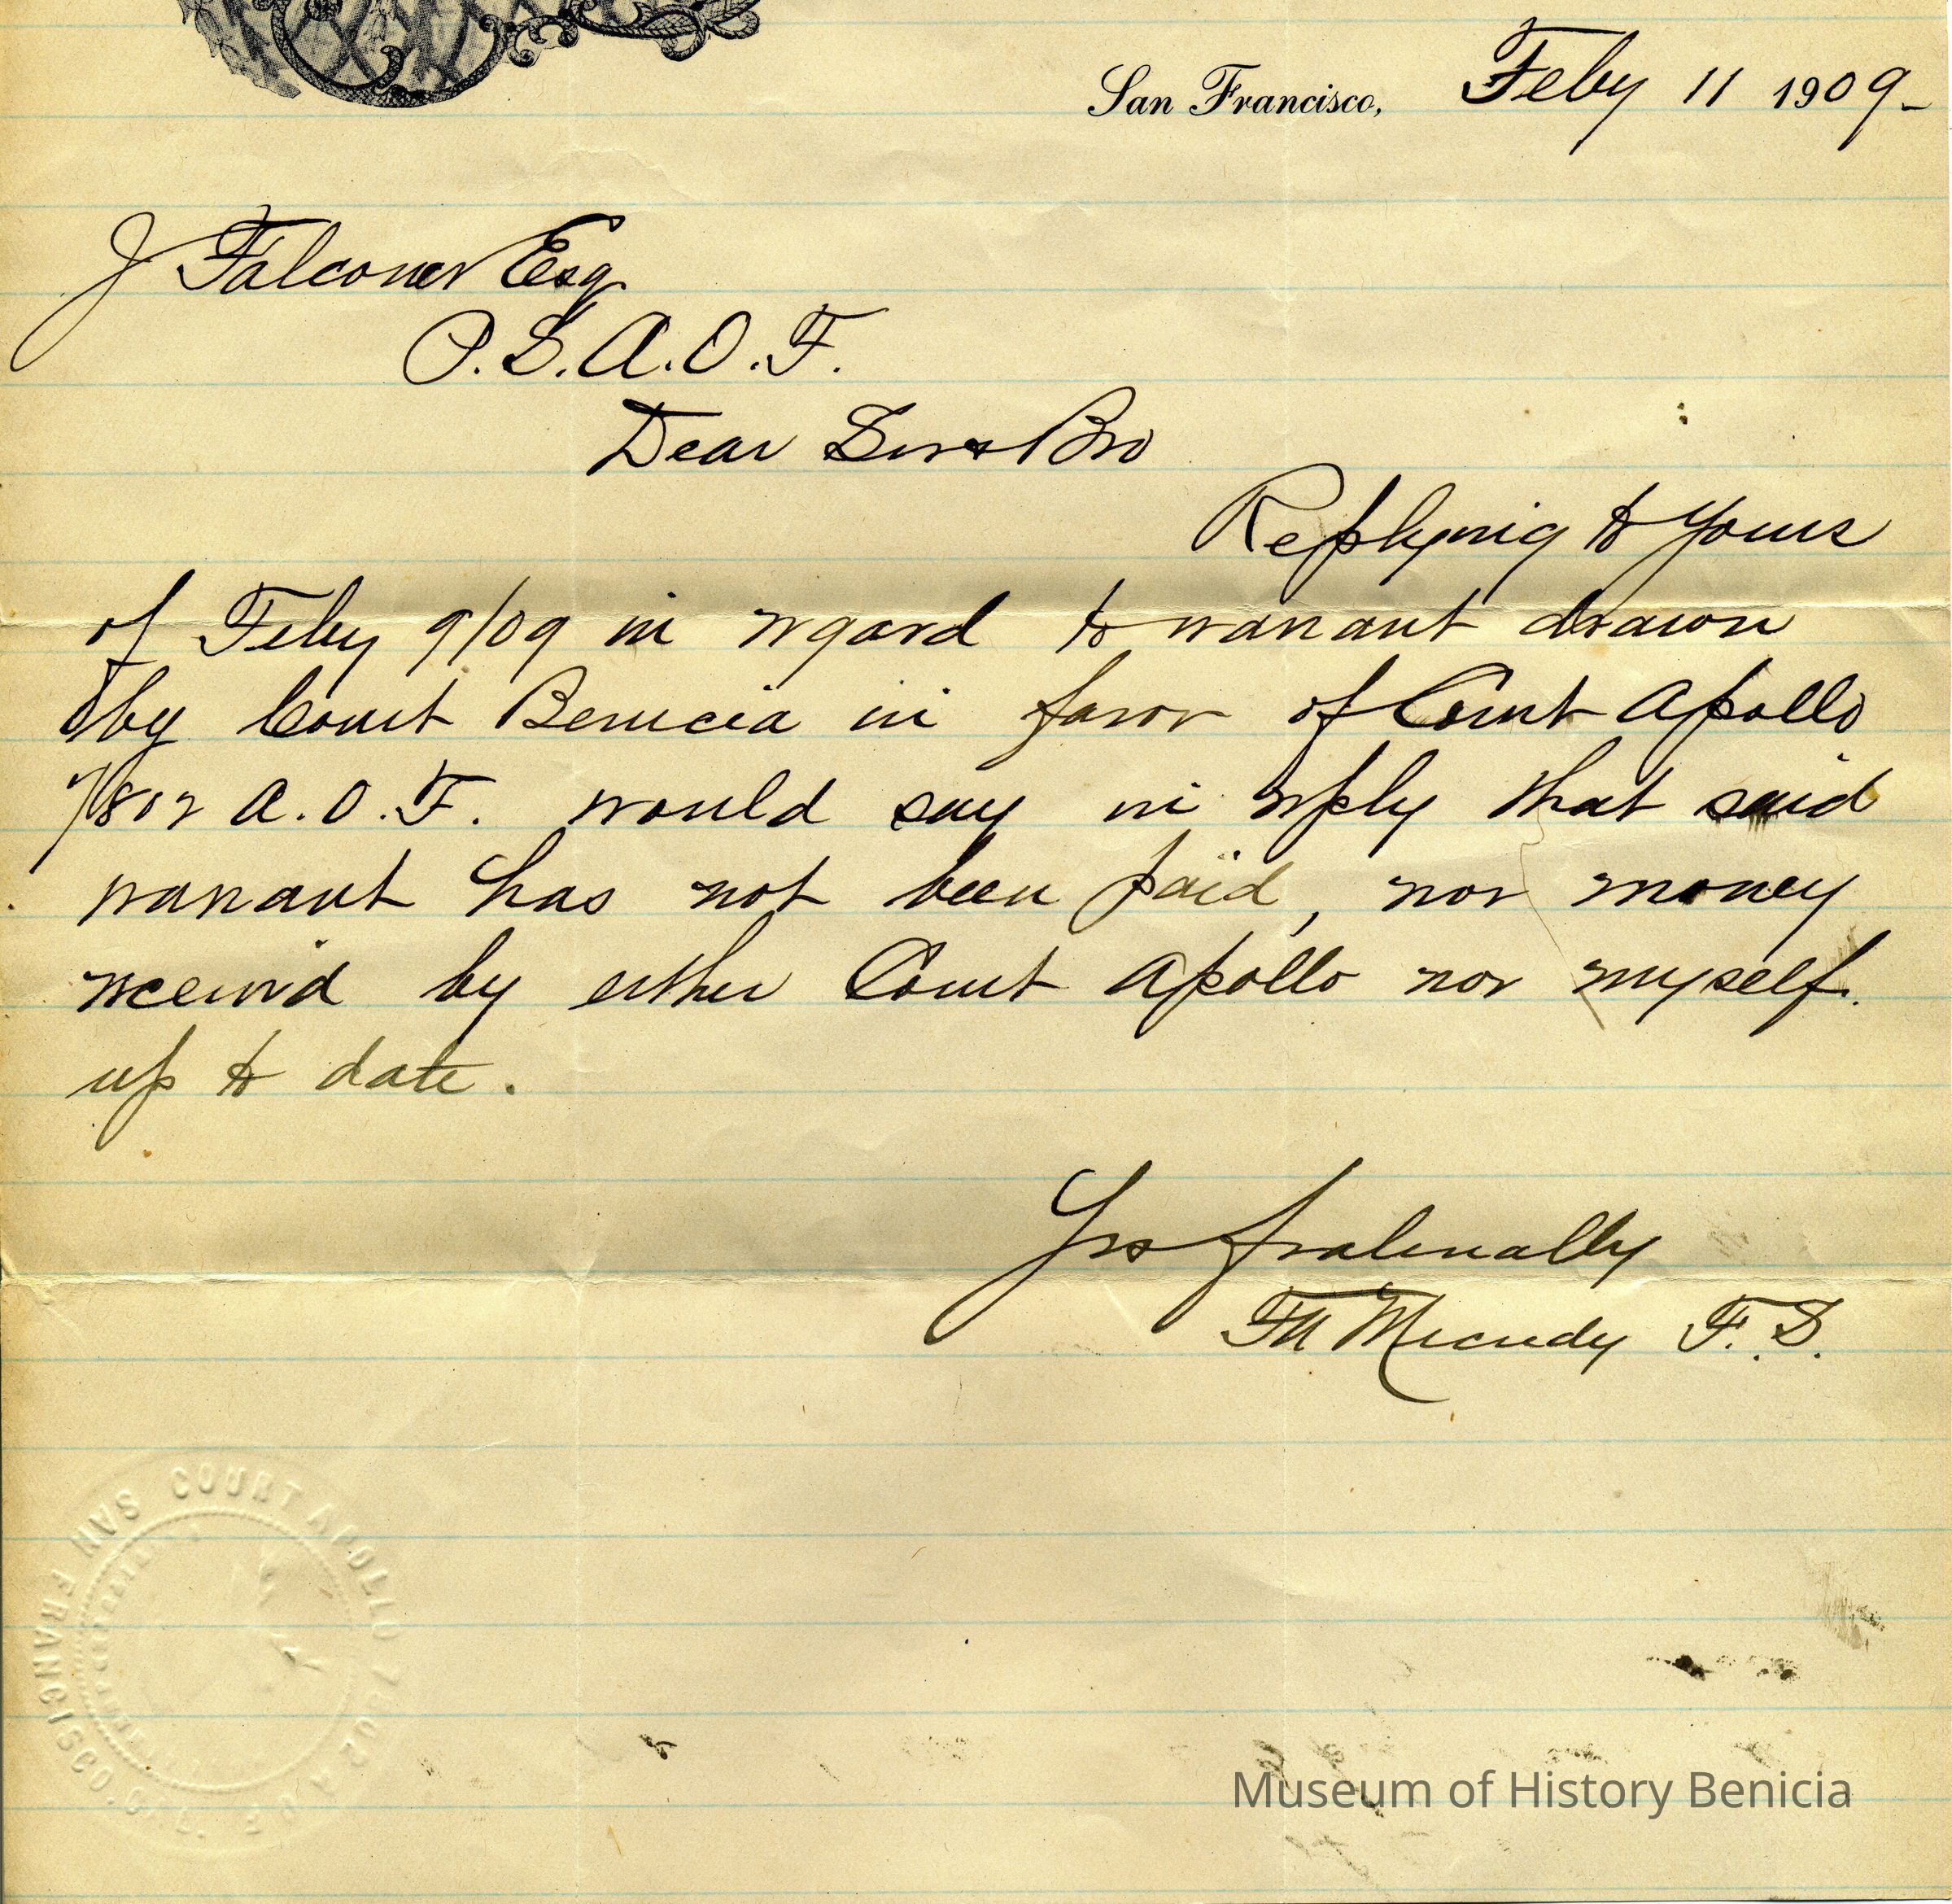 San Francisco, Feby 11 1909-
J Falconer Esq.
P.S.A.O.F.
Dear Sir & Bro
Replying to Yours
of Feby 9/09 in regard to warrant drawn
by Court Benicia in favor of Court Apollo
7802 A.O.F. would say in reply that said
warrant has not been paid, nor money
received by either Court Apollo nor myself.
up to date.
Yrs fraternally
F. S.
SAN FRANCISCO. CAL. COURT APOLLO 7802 A O F
Museum of History Benicia